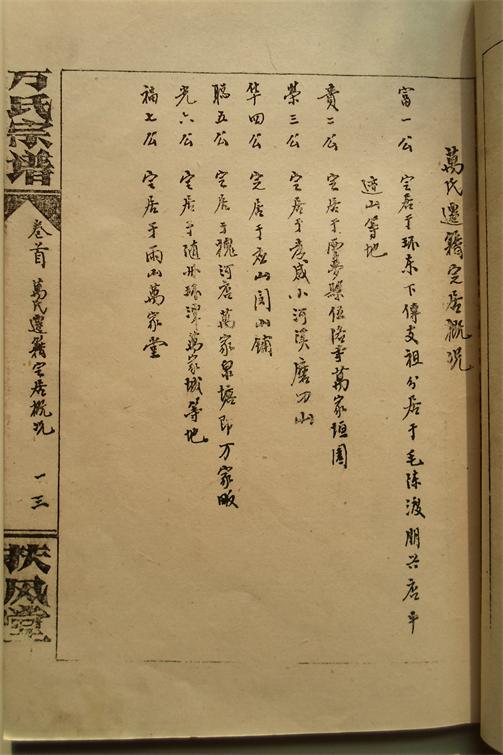 萬氏遷籍定居概况
富一公 定居于环东下傳支祖分居于毛陈渡朋兴店平
迹山等地
貴二公 定居于雲夢縣伍洛寺萬家垣園
榮三公 定居于孝感小河溪磨刀山
华四公 定居于应山闫山铺
聪五公 定居于槐河店萬家泉塘即万家畈
光六公 定居于随州环潭萬家城等地
福七公 定居于兩山萬家堂
万氏宗谱
卷首 萬氏遷籍定居概况 一三
扶风堂